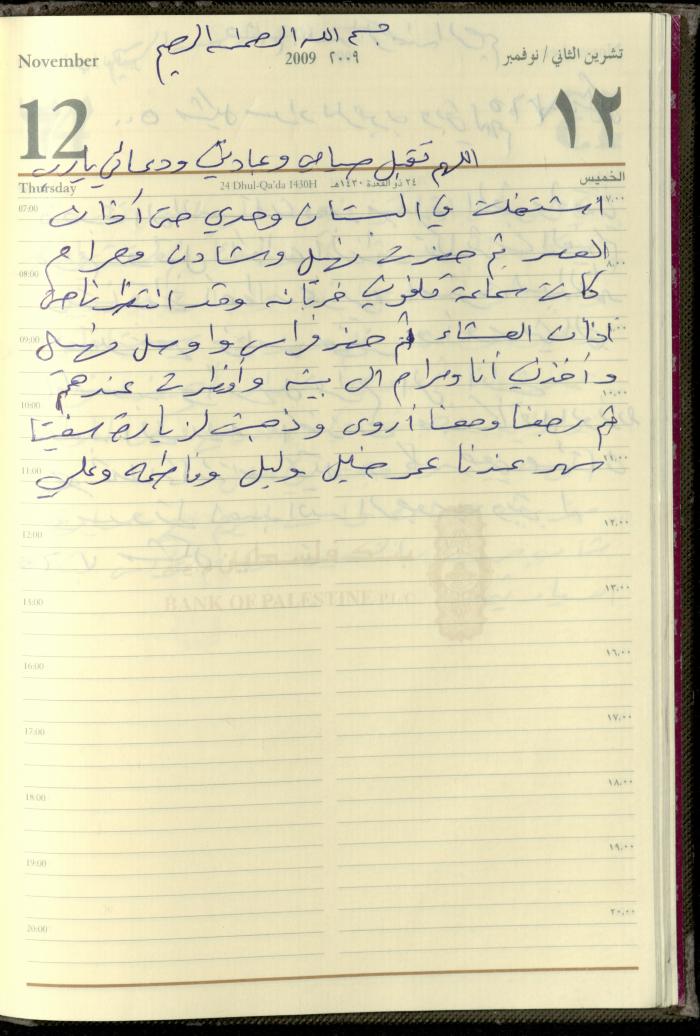 بسم الله الرحمن الرحيم
November 2009 ٢٠٠٩ تشرين الثاني / نوفمبر
12 ١٢
اللهم تقبل صيامي وعبادتي ودعائي يا رب
Thursday 24 Dhul-Qa'da 1430H ٢٤ ذو القعدة ١٤٣٠هـ الخميس
07:00 ٧:٠٠
اشتغلت في البستان وحدي حتى أذان
العصر ثم حضرت نهيل وشادن ومرام
08:00 ٨:٠٠
كانت سماعة تلفوني خربانه وقد انتظرناحتى
09:00
اذان العشاء ثم حضر فراس واوصل نهيل
وأخذني أنا ومرام الى بيته وأفطرت عندهم
10:00 ١٠:٠٠
ثم رجعنا ومعنا أروى وذهبت لزيارة
11:00 ١١:٠٠
سهر عندنا عمر خليل وليل وفاطمه وعلي
12:00 ١٢:٠٠
بنك فلسطين
BANK OF PALESTINE PLC
15:00 ١٣:٠٠
16:00 ١٦:٠٠
17:00 ١٧:٠٠
18:00 ١٨:٠٠
19:00 ١٩:٠٠
20:00 ٢٠:٠٠